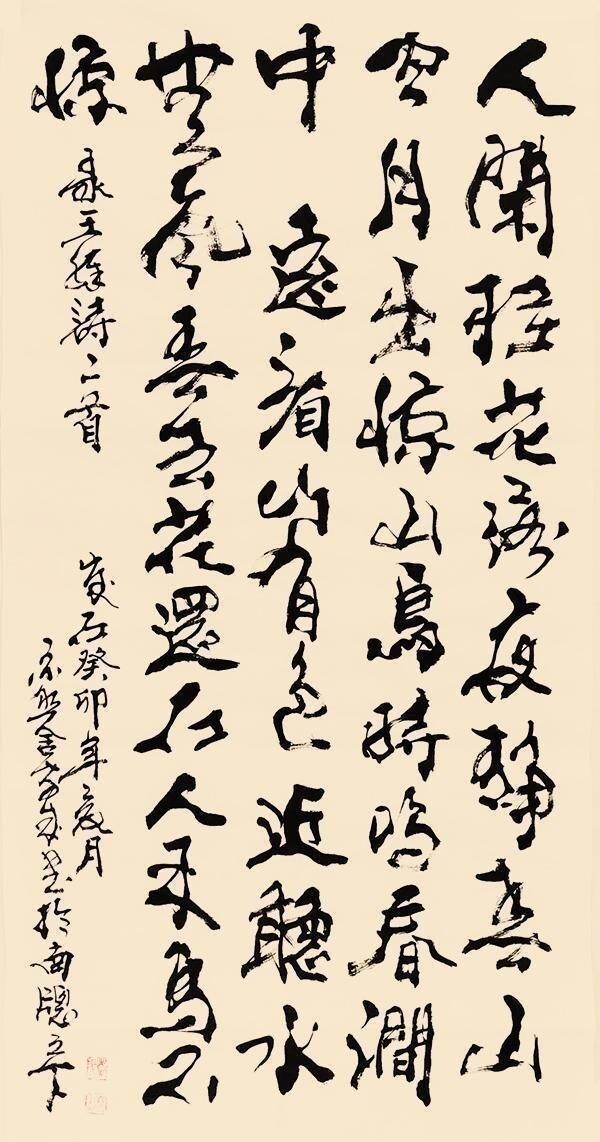 人閒桂花落夜靜春山
空月出惊山鳥時鳴春澗
中 遠看山有色近聽水
無聲春去花還在人來鳥不
惊 录王維詩二首
歲在癸卯年夏月
書於南牕下